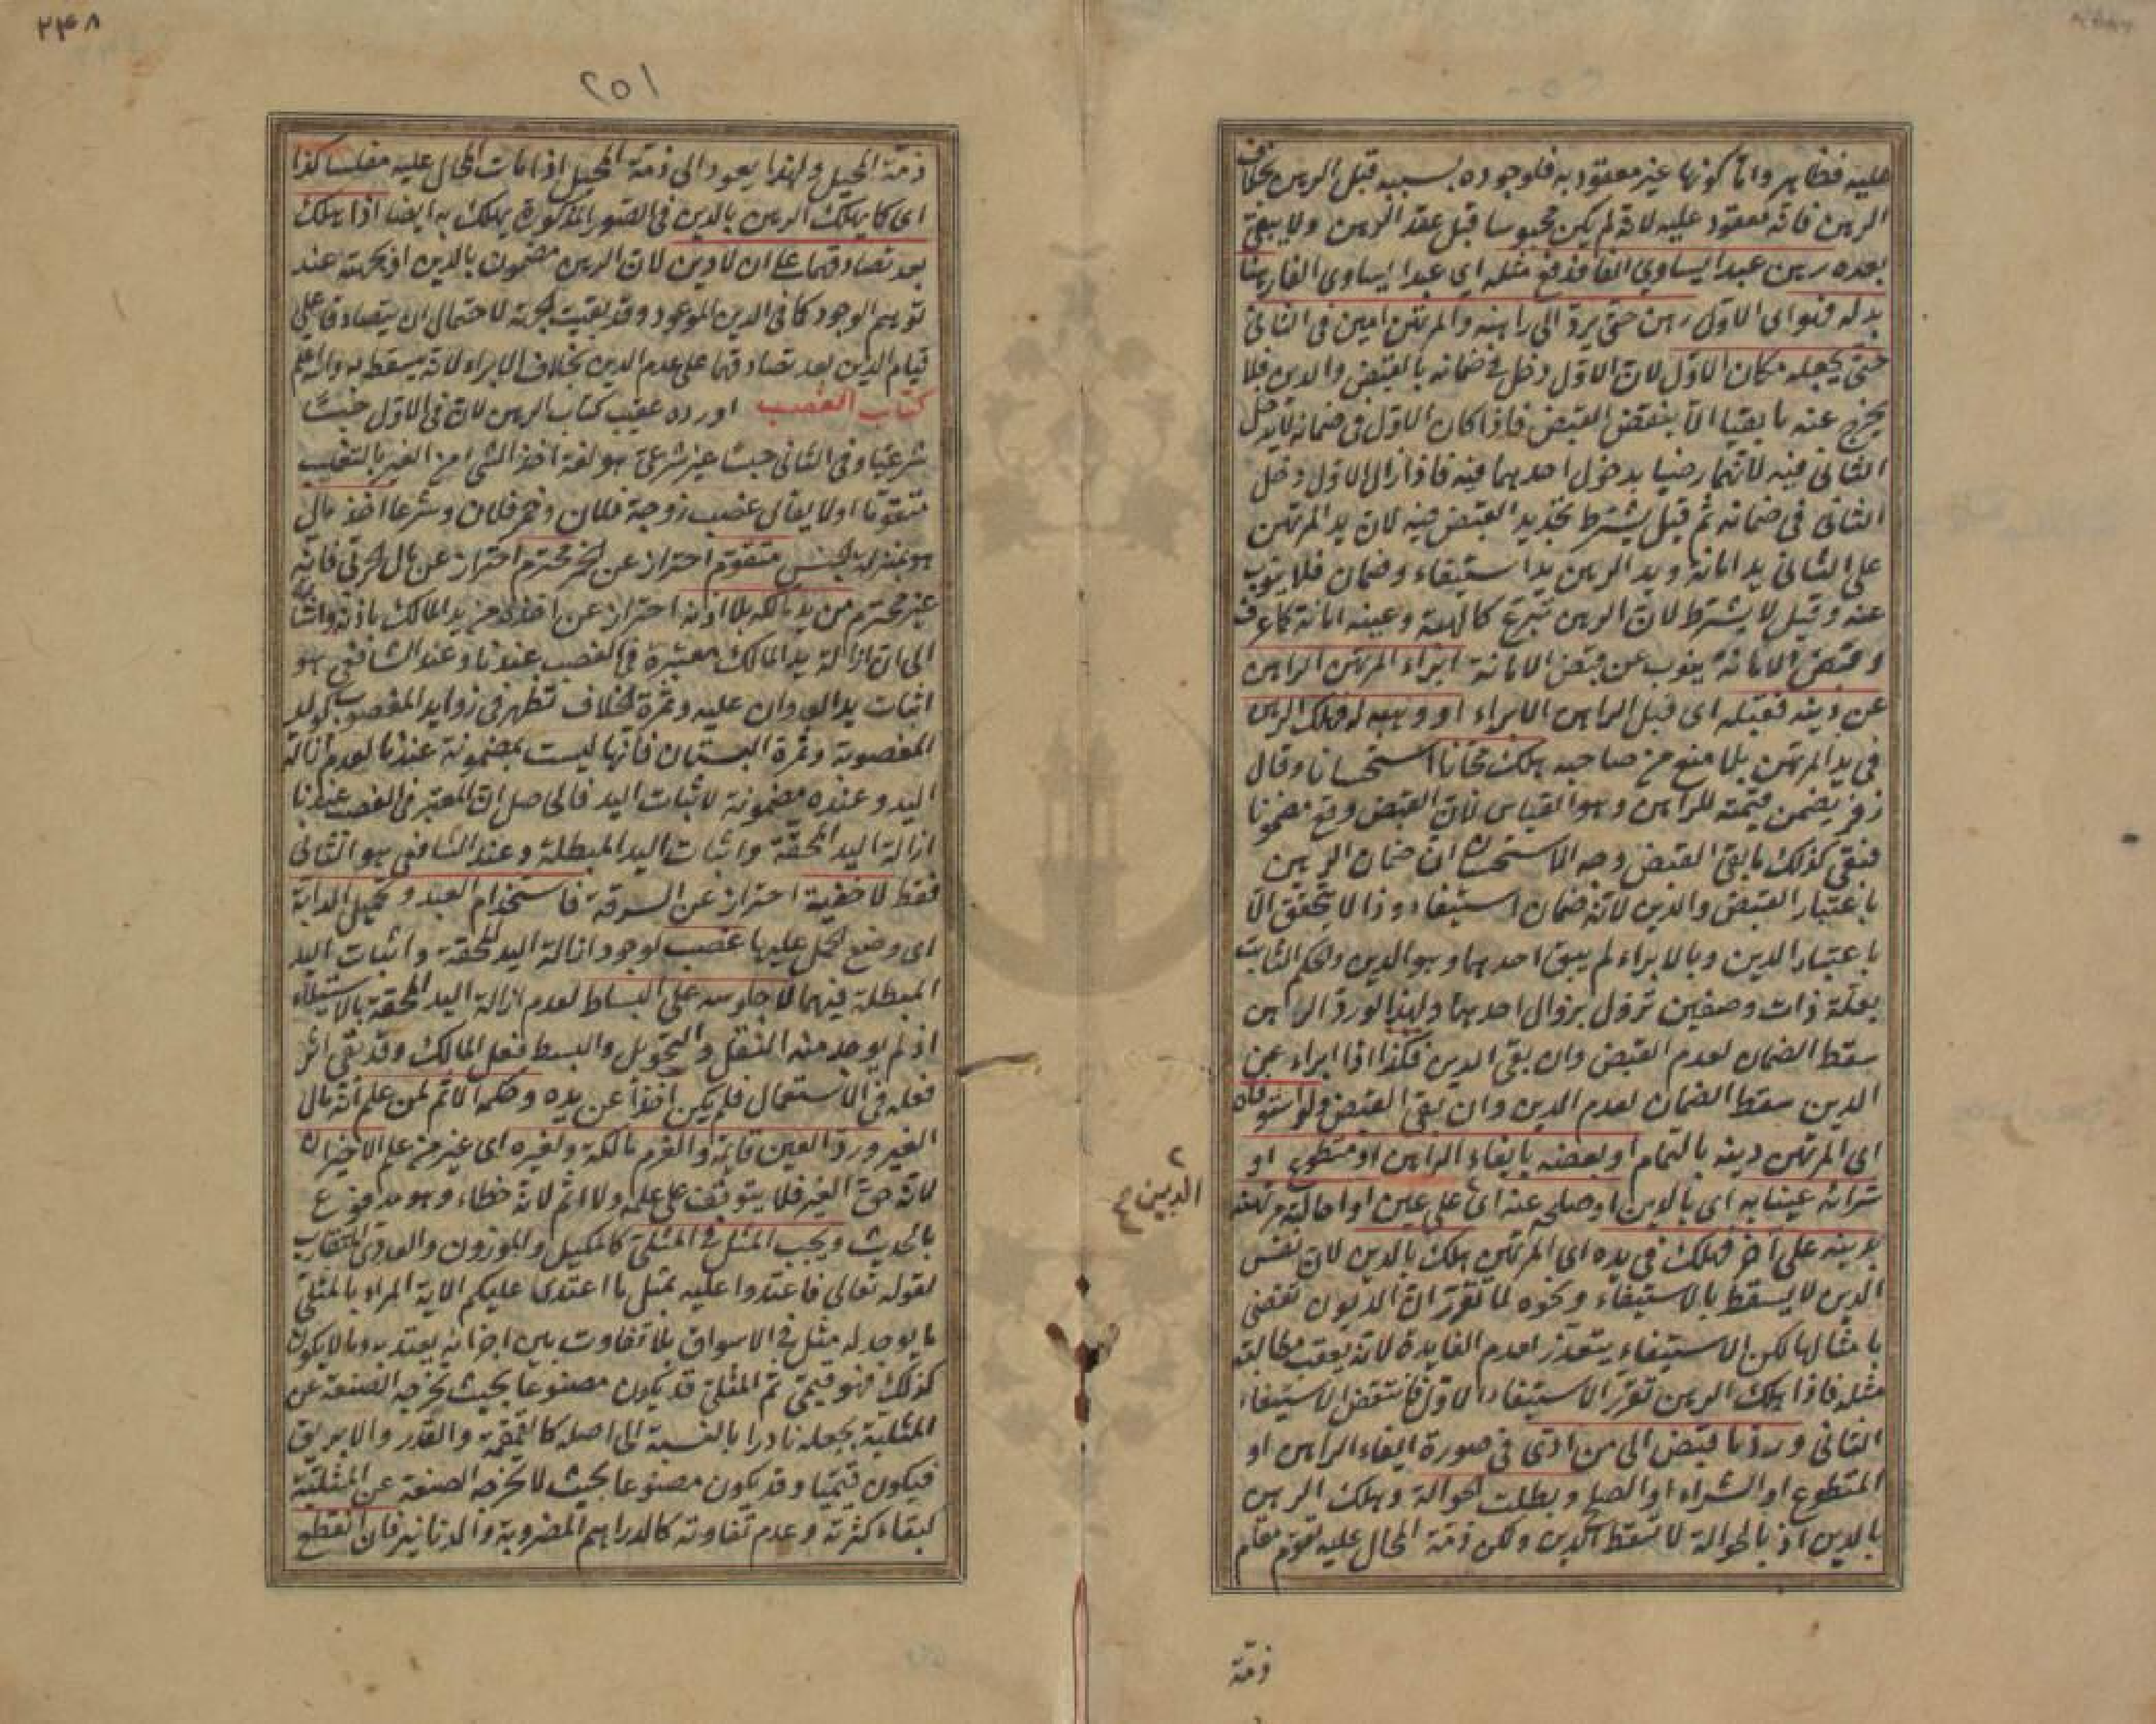 عليه فظاهر واما كونها غير معقود به فلوجوده بسببه قبل الرهن بخلاف
الرهن فانه معقود عليه لانه لم يكن محبوسا قبل عقد الرهن ولا يبقى
بعده رهن عبدا يساوي الفا فدفع مثله اي عبدا يساوي الفا رهنا
بدله فهو اي الاول رهن حتى يرد الى راهنه والمرتهن امين في الثاني
حتى يجعله مكان الاول لان الاول دخل في ضمانه بالقبض والدين فلا
يخرج عنه ما بقيا الا بنقض القبض فاذا كان الاول في ضمانه لا يدخل
الثاني فيه لانهما رضيا بدخول احدهما فيه فاذا زال الاول دخل
الثاني في ضمانه ثم قيل يشترط تجديد القبض فيه لان يد المرتهن
على الثاني يد امانة ويد الرهن يد استيفاء وضمان فلا ينوب
عنه وقيل لا يشترط لان الرهن تبرع كالهبة وعينه امانة كما عرف
وقبض الامانة ينوب عن قبض الامانة ابراء المرتهن الراهن
عن دينه فقبله اي قبل الراهن الابراء او وهبه له فهلك الرهن
في يد المرتهن بلا منع من صاحبه هلك مجانا استحسانا وقال
زفر يضمن قيمته للراهن وهو القياس لان القبض وقع مضمونا
فبقي كذلك ما بقي القبض وجه الاستحسان ان ضمان الرهن
باعتبار القبض والدين لانه ضمان استيفاء وذا لا يتحقق الا
باعتبار الدين وبالابراء لم يبق احدهما وهو الدين والحكم الثابت
بعلة ذات وصفين تزول بزوال احدهما ولهذا لو رد الراهن
سقط الضمان لعدم القبض وان بقي الدين فكذا اذا ابراء عن
الدين سقط الضمان لعدم الدين وان بقي القبض ولو استوفاه
اي المرتهن دينه بالتمام او بعضه بايفاء الراهن او متطوع او
شرائه عينا به اي بالدين او صلحه عنه اي على عين او احالته مرتهنه
بدينه على اخر فهلك في يده اي المرتهن هلك بالدين لان نفس
الدين لا يسقط بالاستيفاء ونحوه لما تقرر ان الديون تقضى
بامثالها لكن الاستيفاء يتعذر لعدم الفايدة لانه يعقب مطالبة
مثله فاذا هلك الرهن تقرر الاستيفاء الاول فانتقض الاستيفاء
الثاني ورد ما قبض الى من ادى في صورة ايفاء الراهن او
المتطوع او الشراء او الصلح وبطلت الحوالة وهلك الرهن
بالدين اذ بالحوالة لا يسقط الدين ولكن ذمة المحال عليه تقوم مقام
٢
الدين صح
ذمة
٢٤٨
٢٥١
ذمة المحيل ولهذا يعود الى ذمة المحيل اذا مات المحال عليه مفلسا كذا
اي كما يهلك الرهن بالدين في الصور المذكورة يهلك به ايضا اذا هلك
بعد تصادقهما على ان لا دين لان الرهن مضمون بالدين او بجهته عند
توهم الوجود كما في الدين الموعود وقد بقيت الجهة لاحتمال ان يتصادقا على
قيام الدين بعد تصادقهما على عدم الدين بخلاف الابراء لانه يسقط به والله اعلم
كتاب الغصب اورده عقيب كتاب الرهن لان في الاول حبسا
شرعيا وفي الثاني حبسا غير شرعي هو لغة اخذ الشئ من الغير بالتغلب
متقوما اولا يقال غصب زوجة فلان وخمر فلان وشرعا اخذ مال
هو بمنزلة الجنس متقوم احتراز عن الخمر محترم احتراز عن مال الحربي فانه
غير محترم من يد مالكه بلا اذنه احتراز عن اخذه من يد المالك باذنه واشار
الى ان ازالة يد المالك معتبرة في الغصب عندنا وعند الشافعي هو
اثبات يد العدوان عليه وثمرة الخلاف تظهر في زوايد المغصوب كولد
المغصوبة وثمرة البستان فانها ليست بمضمونة عندنا لعدم ازالة
اليد وعنده مضمونة لاثبات اليد فالحاصل ان المعتبر في الغصب عندنا
ازالة اليد المحقة واثبات اليد المبطلة وعند الشافعي هو الثاني
فقط لا خفية احتراز عن السرقة فاستخدام العبد وتحميل الدابة
اي وضع الحمل عليها غصب لوجود ازالة اليد المحقة واثبات اليد
المبطلة فيهما لا جلوسه على البساط لعدم ازالة اليد المحقة بالاستيلاء
اذ لم يوجد منه النقل والتحويل والبسط فعل المالك وقد بقي اثر
فعله في الاستعمال فلم يكن اخذا عن يده وحكمه الاثم لمن علم انه مال
الغير ورد العين قايمة والغرم هالكة ولغيره اي غير من علم الاخيران
لانه حق الغير فلا يتوقف على علمه ولا اثم لانه خطاء وهو مرفوع
بالحديث ويجب المثل في المثلي كالمكيل والموزون والعددي المتقارب
لقوله تعالى فاعتدوا عليه بمثل ما اعتدى عليكم الاية المراد بالمثلي
ما يوجد له مثل في الاسواق بلا تفاوت بين اجزائه يعتد به وما لا يكون
كذلك فهو قيمي ثم المثلي قد يكون مصنوعا بحيث تخرجه الصنعة عن
المثلية بجعله نادرا بالنسبة الى اصله كالقمقمة والقدر والابريق
فيكون قيميا وقد يكون مصنوعا بحيث لا يخرجه الصنعة عن المثلية
لبقاء كثرته وعدم تفاوته كالدراهم المضروبة والدنانير فان انقطع